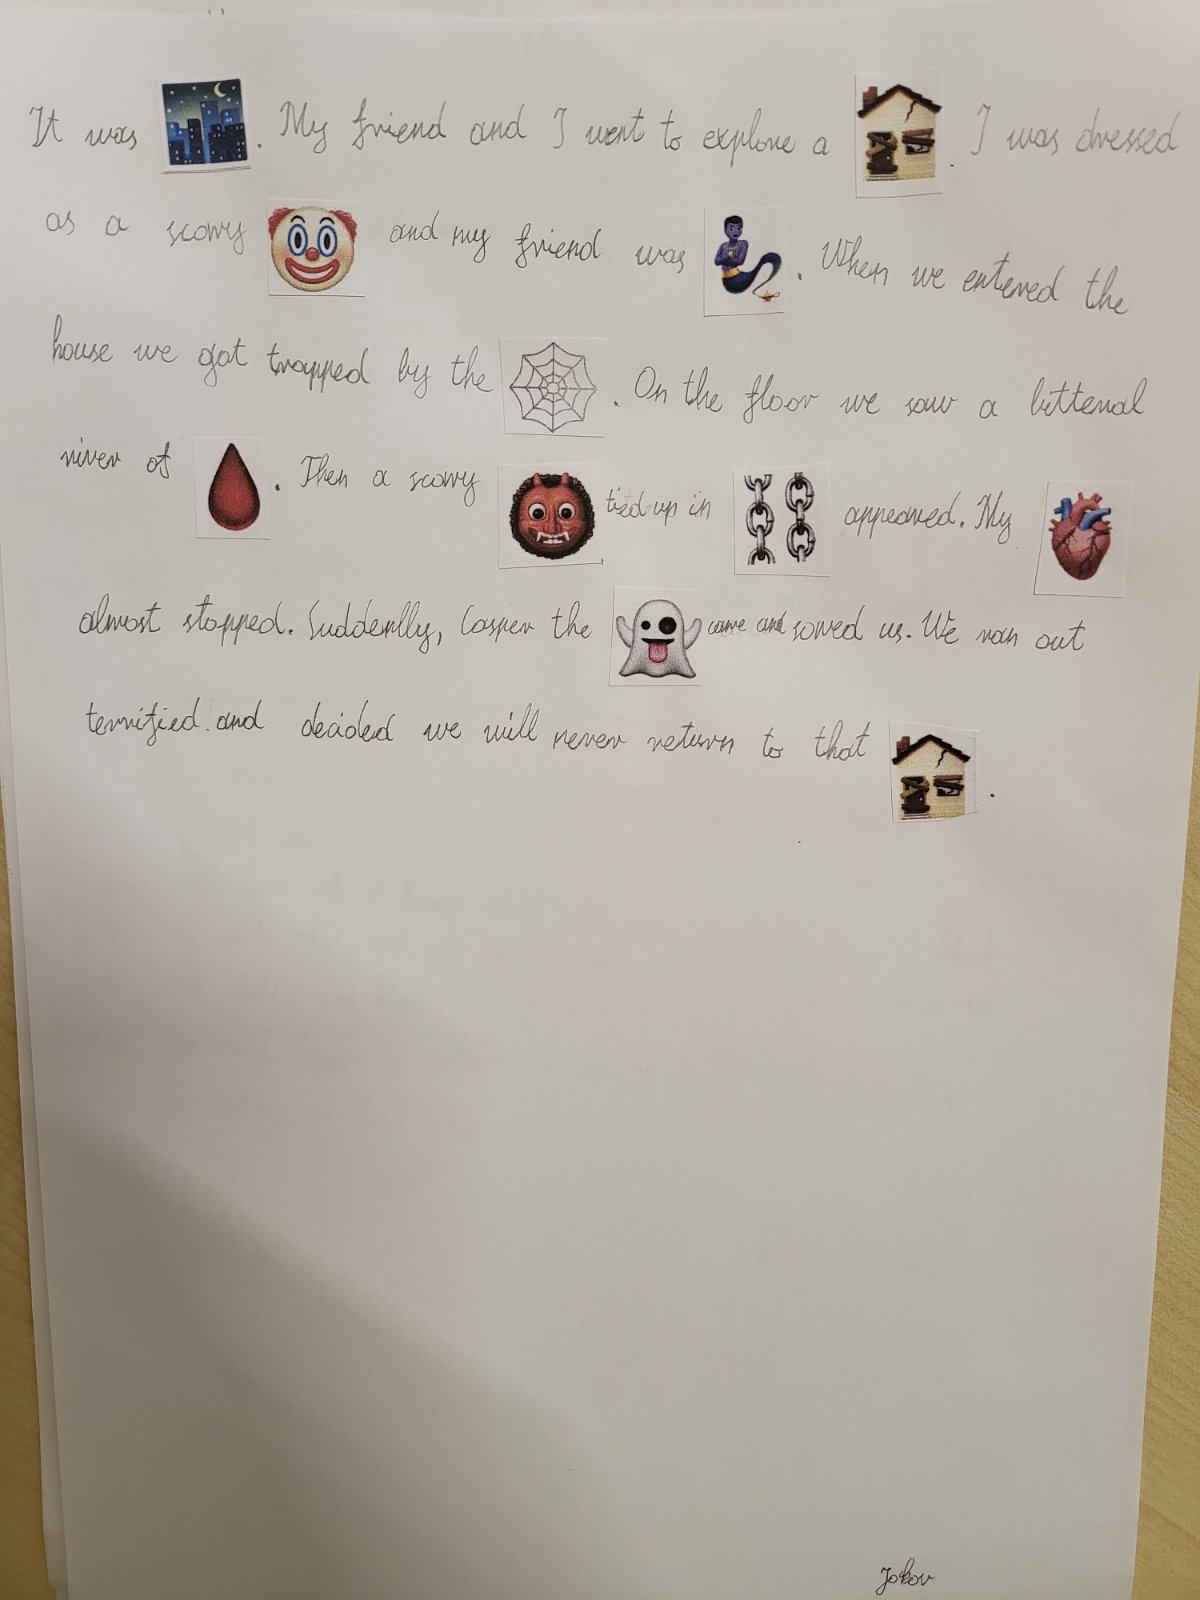 It was . My friend and I went to explore a . I was dressed
as a scary and my friend was . When we entered the
house we got trapped by the . On the floor we saw a litteral
river of . Then a scary tied up in appeared. My
almost stopped. Suddenlly, Casper the came and saved us. We ran out
terrified and decided we will never return to that .
Jakov